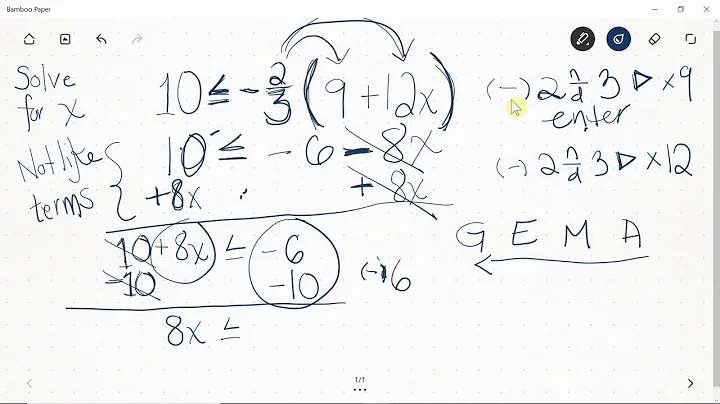 Bamboo Paper
Solve for x
10 ≤ -2/3 (9 + 12x)
(-) 2 n/d 3 ▷ ×9
enter
Not like terms
10 ≤ -6 - 8x
+8x + 8x
(-) 2 n/d 3 ▷ ×12
10 + 8x ≤ -6
-10 -10
(-) 6
G E M A
8x ≤
1/1